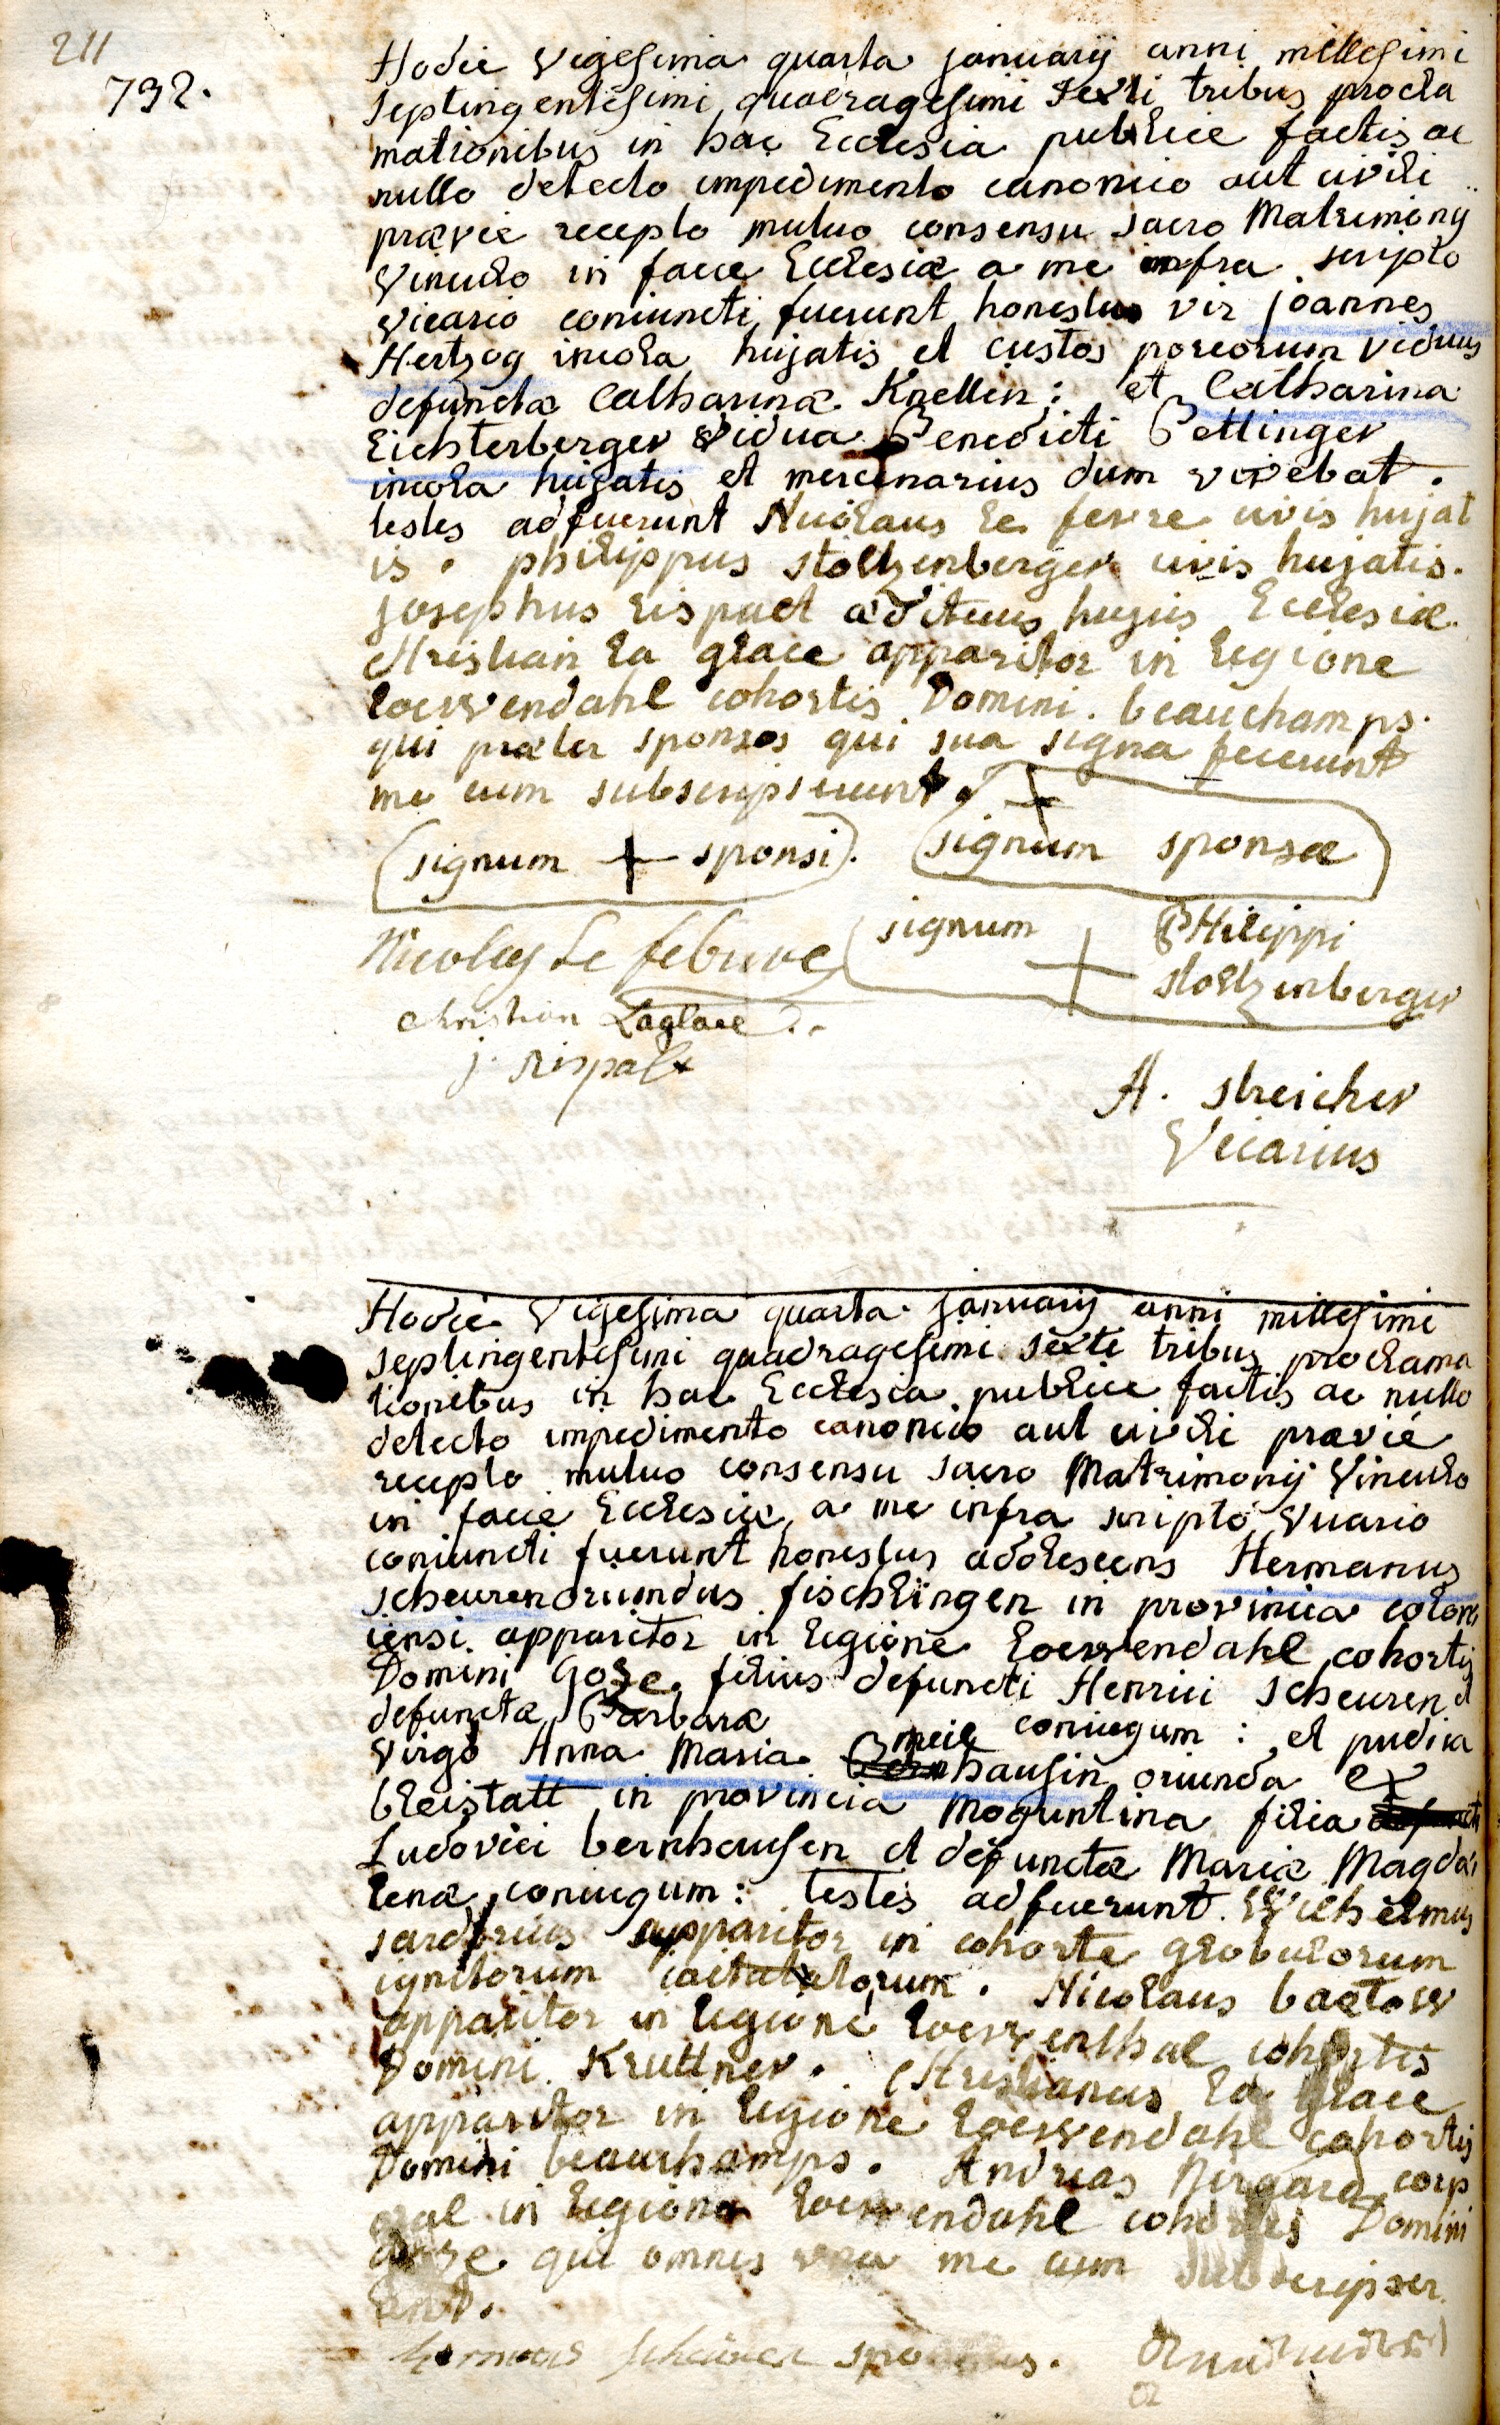 211
732.
Hodie Vigesima quarta januarij anni millesimi
septingentesimi quadragesimi sexti tribus procla
mationibus in hac Ecclesia publice factis ac
nullo detecto impedimento canonico aut civili
prævie recepto mutuo consensu sacro Matrimonij
Vinculo in facie Ecclesiæ a me infra scripto
vicario coniuncti fuerunt honestus vir joannes
Hertzog incola hujatis et custos porcorum viduus
defunctæ Catharinæ Knellin; et Catharina
Eichterberger Vidua Benedicti Bettinger
incola hujatis et mercenarius dum vivebat.
testes adfuerunt Nicolaus le fevre civis hujat
is. philippus stoltzenberger civis hujatis.
josephus rispalt ædituus hujus Ecclesiæ.
Christian la glace apparitor in legione
loewendahl cohortis Domini. beauchamps.
qui præter sponsos qui sua signa fecerunt
me cum subscripserunt.
signum + sponsi. signum + sponsæ
Nicolas Le febuvre signum + Philippi
stoltzenberger
christian Laglace
j. rispalt
A. streicher
Vicarius
Hodie Vigesima quarta januarij anni millesimi
septingentesimi quadragesimi sexti tribus proclama
tionibus in hac Ecclesia publice factis ac nullo
detecto impedimento canonico aut civili prævié
recepto mutuo consensu sacro Matrimonij Vinculo
in facie Ecclesiæ a me infra scripto Vicario
coniuncti fuerunt honestus adolescens Hermanus
scheuren oriundus fischlingen in provincia coloni
iensi. apparitor in legione loewendahl cohortis
Domini Goze filius defuncti Henrici scheuren et
defunctæ Barbaræ coniugum: et pudica
virgo Anna Maria hausin oriunda ex
bleistatt in provincia Moguntina filia
Ludovici bernhausen et defunctæ Mariæ Magda
lenæ coniugum: testes adfuerunt. Wilhelmus
sartorius apparitor in cohorte globulorum
ignitorum. Nicolaus
apparitor in legione loewenthal cohortis
Domini. Kruttner. Christianus la glace
apparitor in legione loewendahl cohortis
Domini beauchamps. Andreas corp
oral in legione loewendahl cohortis Domini
qui omnes una me cum subscripser
unt.
sponsus.